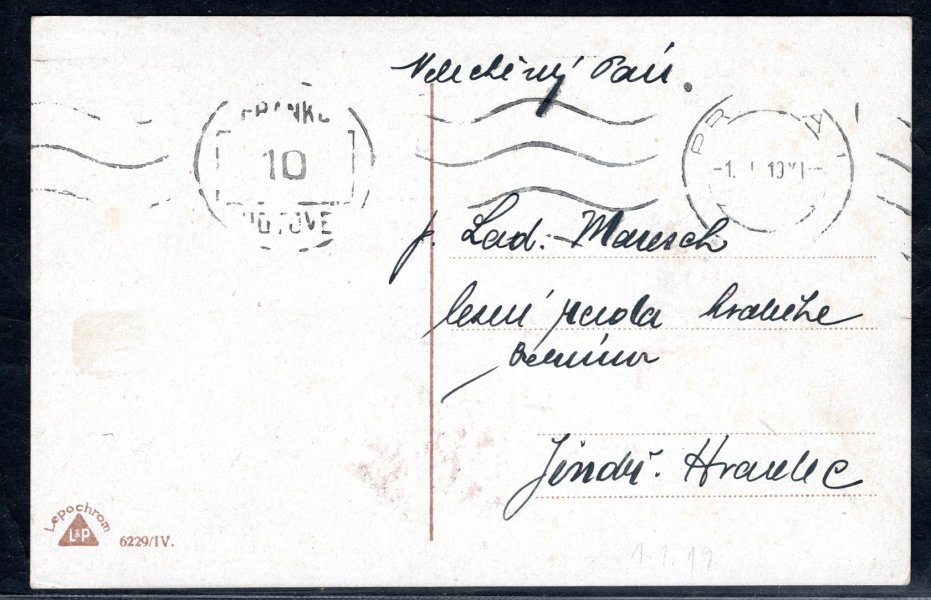 Velectěný Pan.
FRANKO
10
HOTOVĚ
PR
-1. I 19 VI-
p. Lad. Maresch
lesní rada hraběte
Černína
Jindř. Hradec
Lepochrom
L&P
6229/IV.
1.1.19